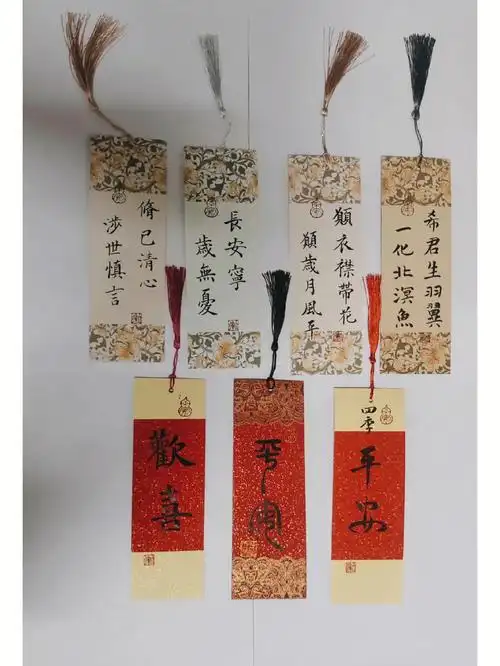 脩己清心
涉世慎言
長安寧
歲無憂
願衣襟帶花
願歲月風平
希君生羽翼
一化北溟魚
歡喜
平安
四季
平安